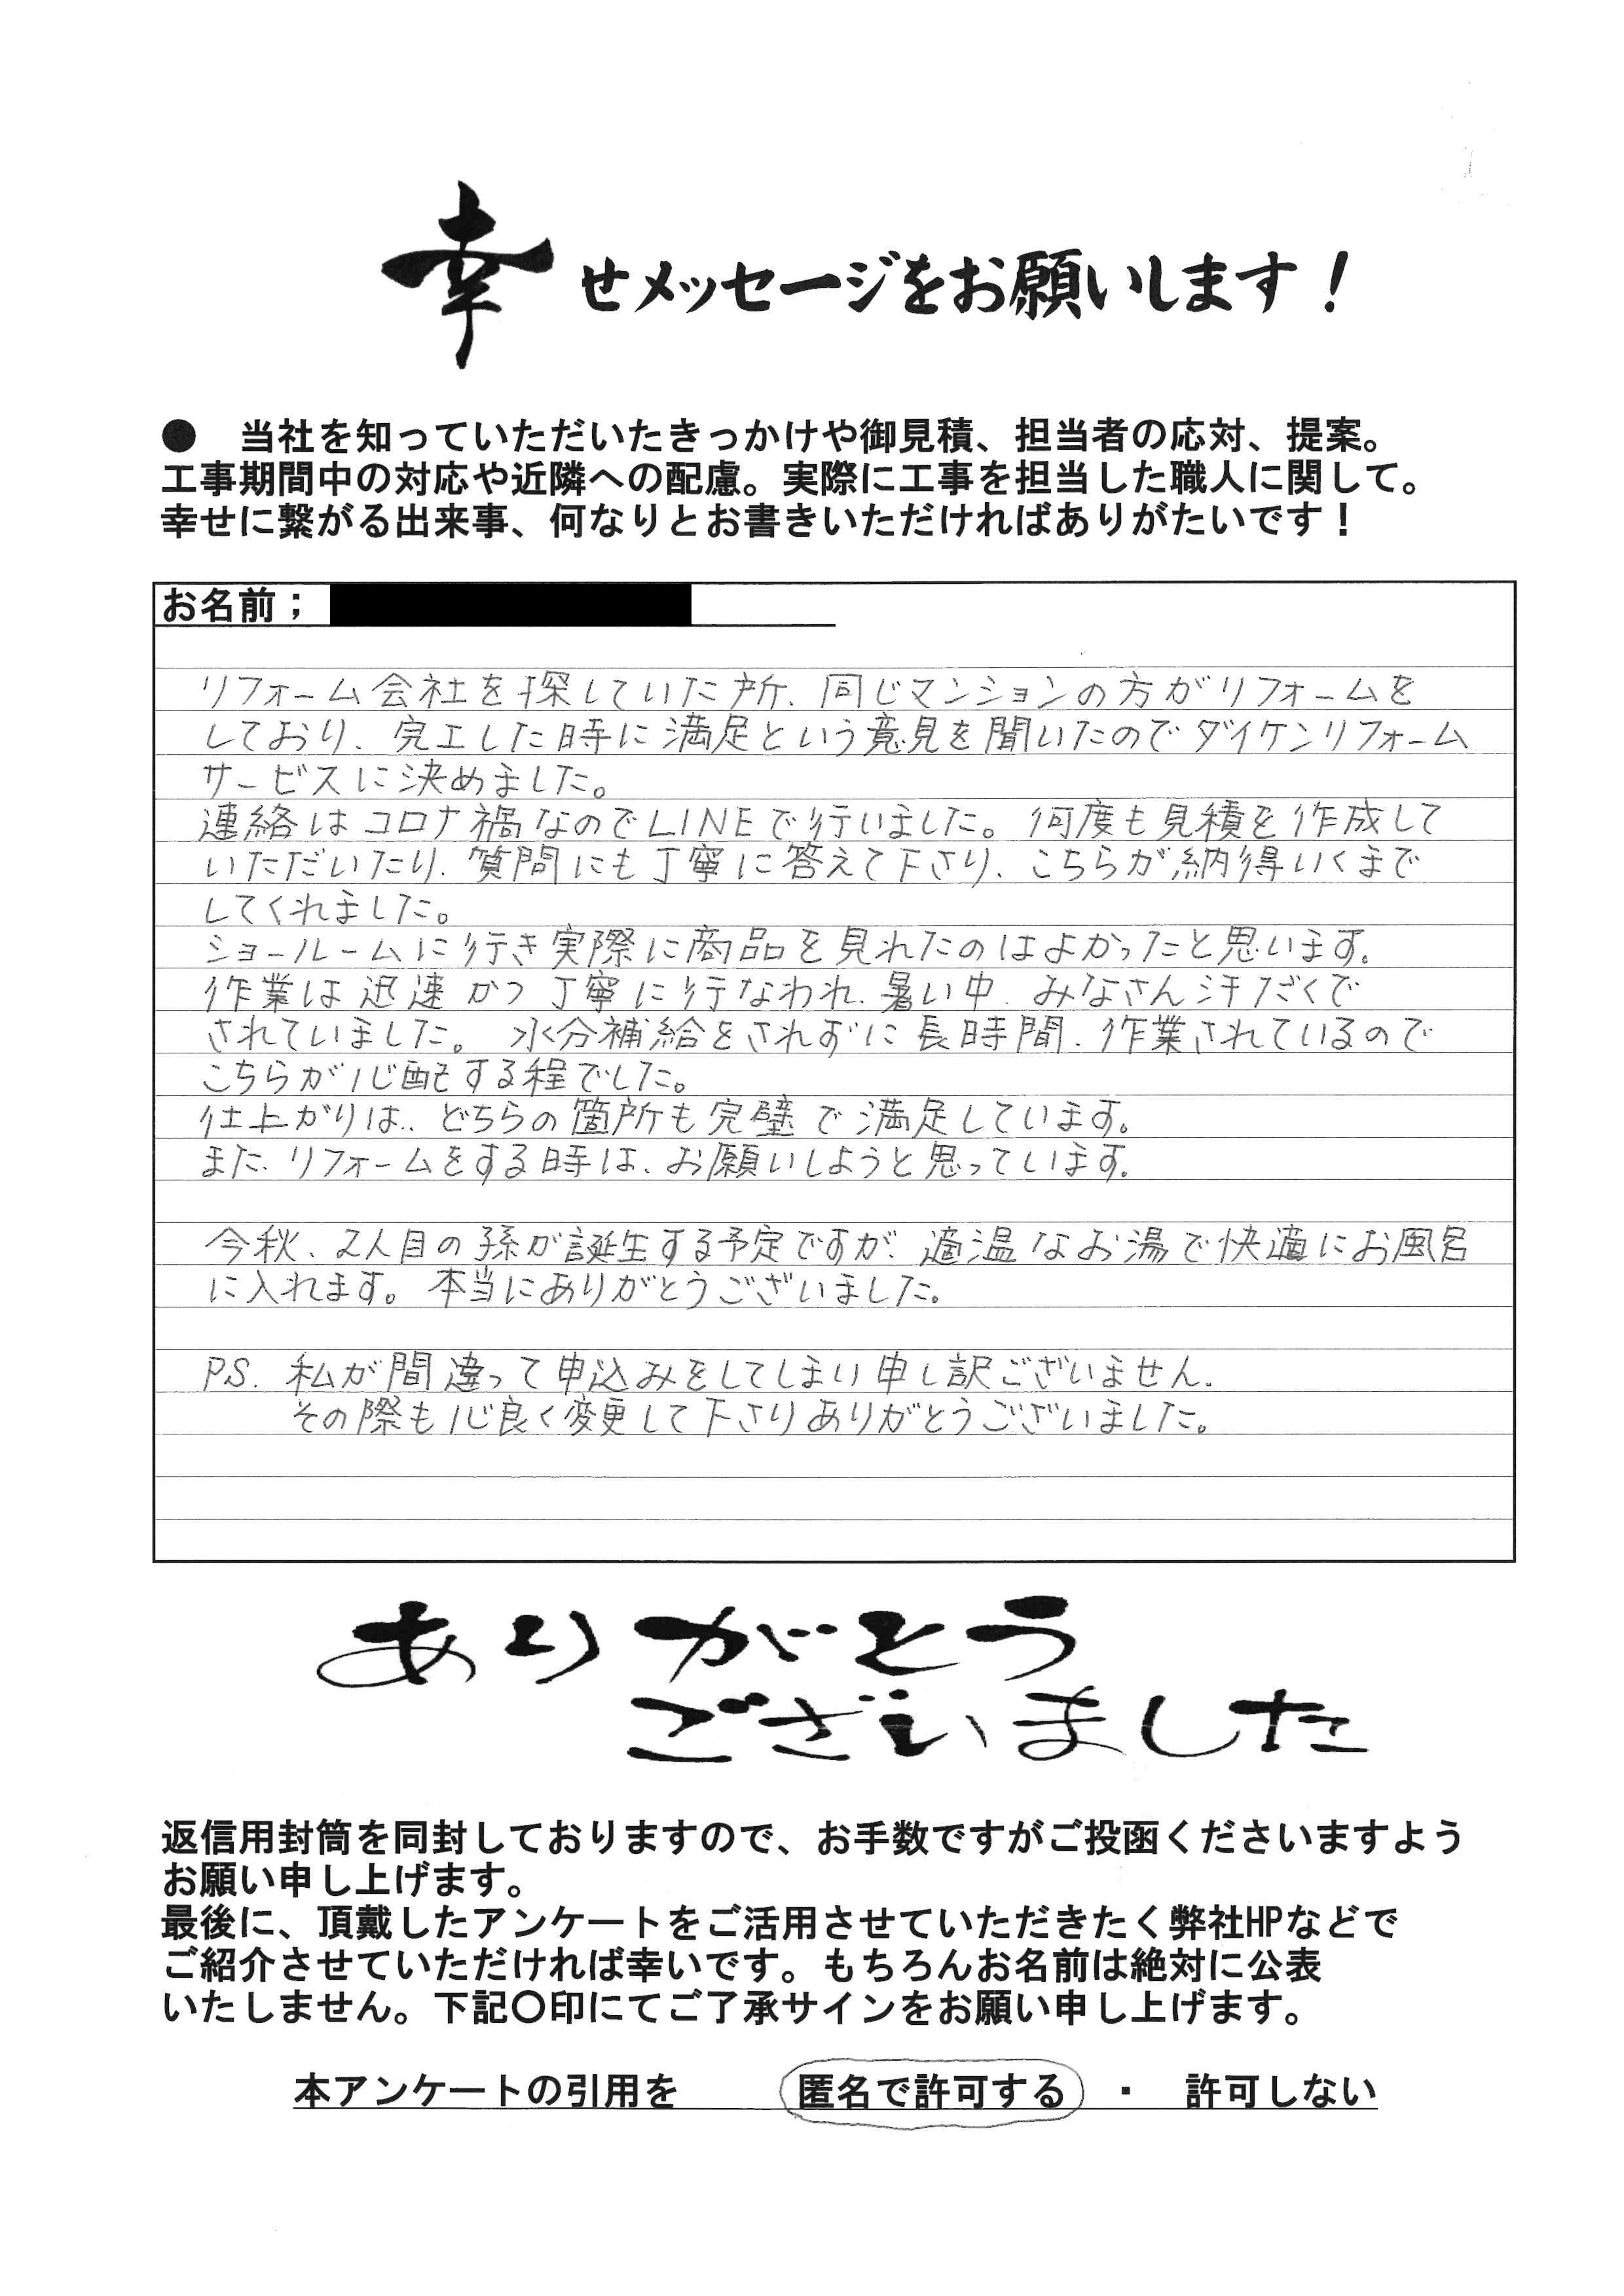 幸せメッセージをお願いします！
●　当社を知っていただいたきっかけや御見積、担当者の応対、提案。
工事期間中の対応や近隣への配慮。実際に工事を担当した職人に関して。
幸せに繋がる出来事、何なりとお書きいただければありがたいです！
お名前；
リフォーム会社を探していた所、同じマンションの方がリフォームを
しており、完工した時に満足という意見を聞いたのでダイケンリフォーム
サービスに決めました。
連絡はコロナ禍なのでLINEで行いました。何度も見積を作成して
いただいたり、質問にも丁寧に答えて下さり、こちらが納得いくまで
してくれました。
ショールームに行き実際に商品を見れたのはよかったと思います。
作業は迅速かつ丁寧に行なわれ、暑い中、みなさん汗だくで
されていました。水分補給をされずに長時間、作業されているので
こちらが心配する程でした。
仕上がりは、どちらの箇所も完璧で満足しています。
また、リフォームをする時は、お願いしようと思っています。
今秋、2人目の孫が誕生する予定ですが、適温なお湯で快適にお風呂
に入れます。本当にありがとうございました。
P.S. 私が間違って申込みをしてしまい申し訳ございません。
その際も心良く変更して下さりありがとうございました。
ありがとう
ございました
返信用封筒を同封しておりますので、お手数ですがご投函くださいますよう
お願い申し上げます。
最後に、頂戴したアンケートをご活用させていただきたく弊社HPなどで
ご紹介させていただければ幸いです。もちろんお名前は絶対に公表
いたしません。下記〇印にてご了承サインをお願い申し上げます。
本アンケートの引用を　匿名で許可する　・　許可しない